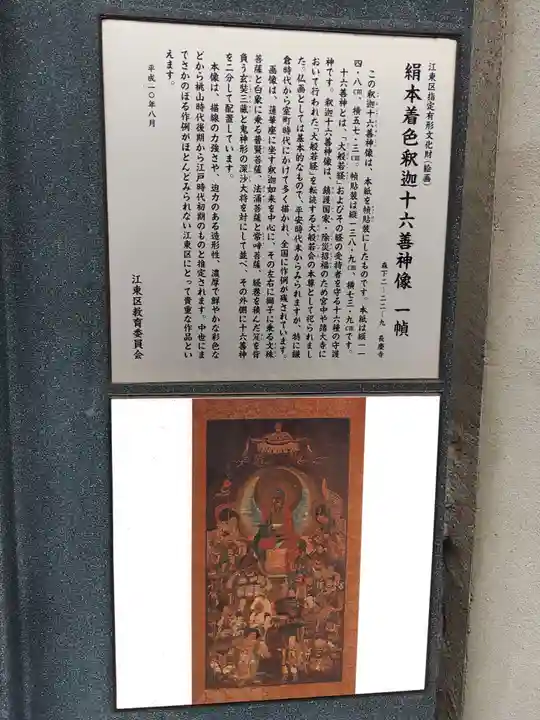 江東区指定有形文化財(絵画)
絹本着色釈迦十六善神像 一幀
森下二-二二-九 長慶寺
この釈迦十六善神像は、本紙を幀貼装にしたものです。本紙は縦一一
四・八㎝、横五七・三㎝、幀貼装は縦一三八・九㎝、横七三・九㎝です。
十六善神とは、「大般若経」およびその経の受持者を守る十六種の守護
神です。釈迦十六善神像は、鎮護国家・除災招福のため宮中や諸大寺に
おいて行われた「大般若経」を転読する大般若会の本尊として祀られまし
た。仏画としては基本的なもので、平安時代末からみられますが、特に鎌
倉時代から室町時代にかけて多く描かれ、全国に作例が残されています。
画像は、蓮華座に坐す釈迦如来を中心に、その左右に獅子に乗る文殊
菩薩と白象に乗る普賢菩薩、法涌菩薩と常啼菩薩、経巻を積んだ笈を背
負う玄奘三蔵と鬼神形の深沙大将を対にして並べ、その外側に十六善神
を二分して配置しています。
本像は、描線の力強さや、迫力のある造形性、濃厚で鮮やかな彩色な
どから桃山時代後期から江戸時代初期のものと推定されます。中世にま
でさかのぼる作例がほとんどみられない江東区にとって貴重な作品とい
えます。
平成一〇年八月
江東区教育委員会